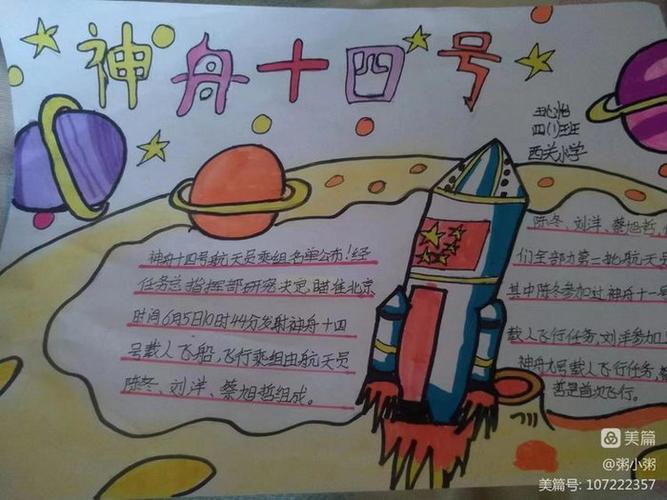 神舟十四号
四(1)班
西关小学
神舟十四号航天员乘组名单公布!经
任务总指挥部研究决定,瞄准北京
时间6月5日10时44分发射神舟十四
号载人飞船,飞行乘组由航天员
陈冬、刘洋、蔡旭哲组成。
陈冬、刘洋、蔡旭哲,
们全部为第二批航天员
其中陈冬参加过神舟十一号
载人飞行任务,刘洋参加
神舟九号载人飞行任务,
哲是首次飞行。
美篇
@粥小粥
美篇号: 107222357